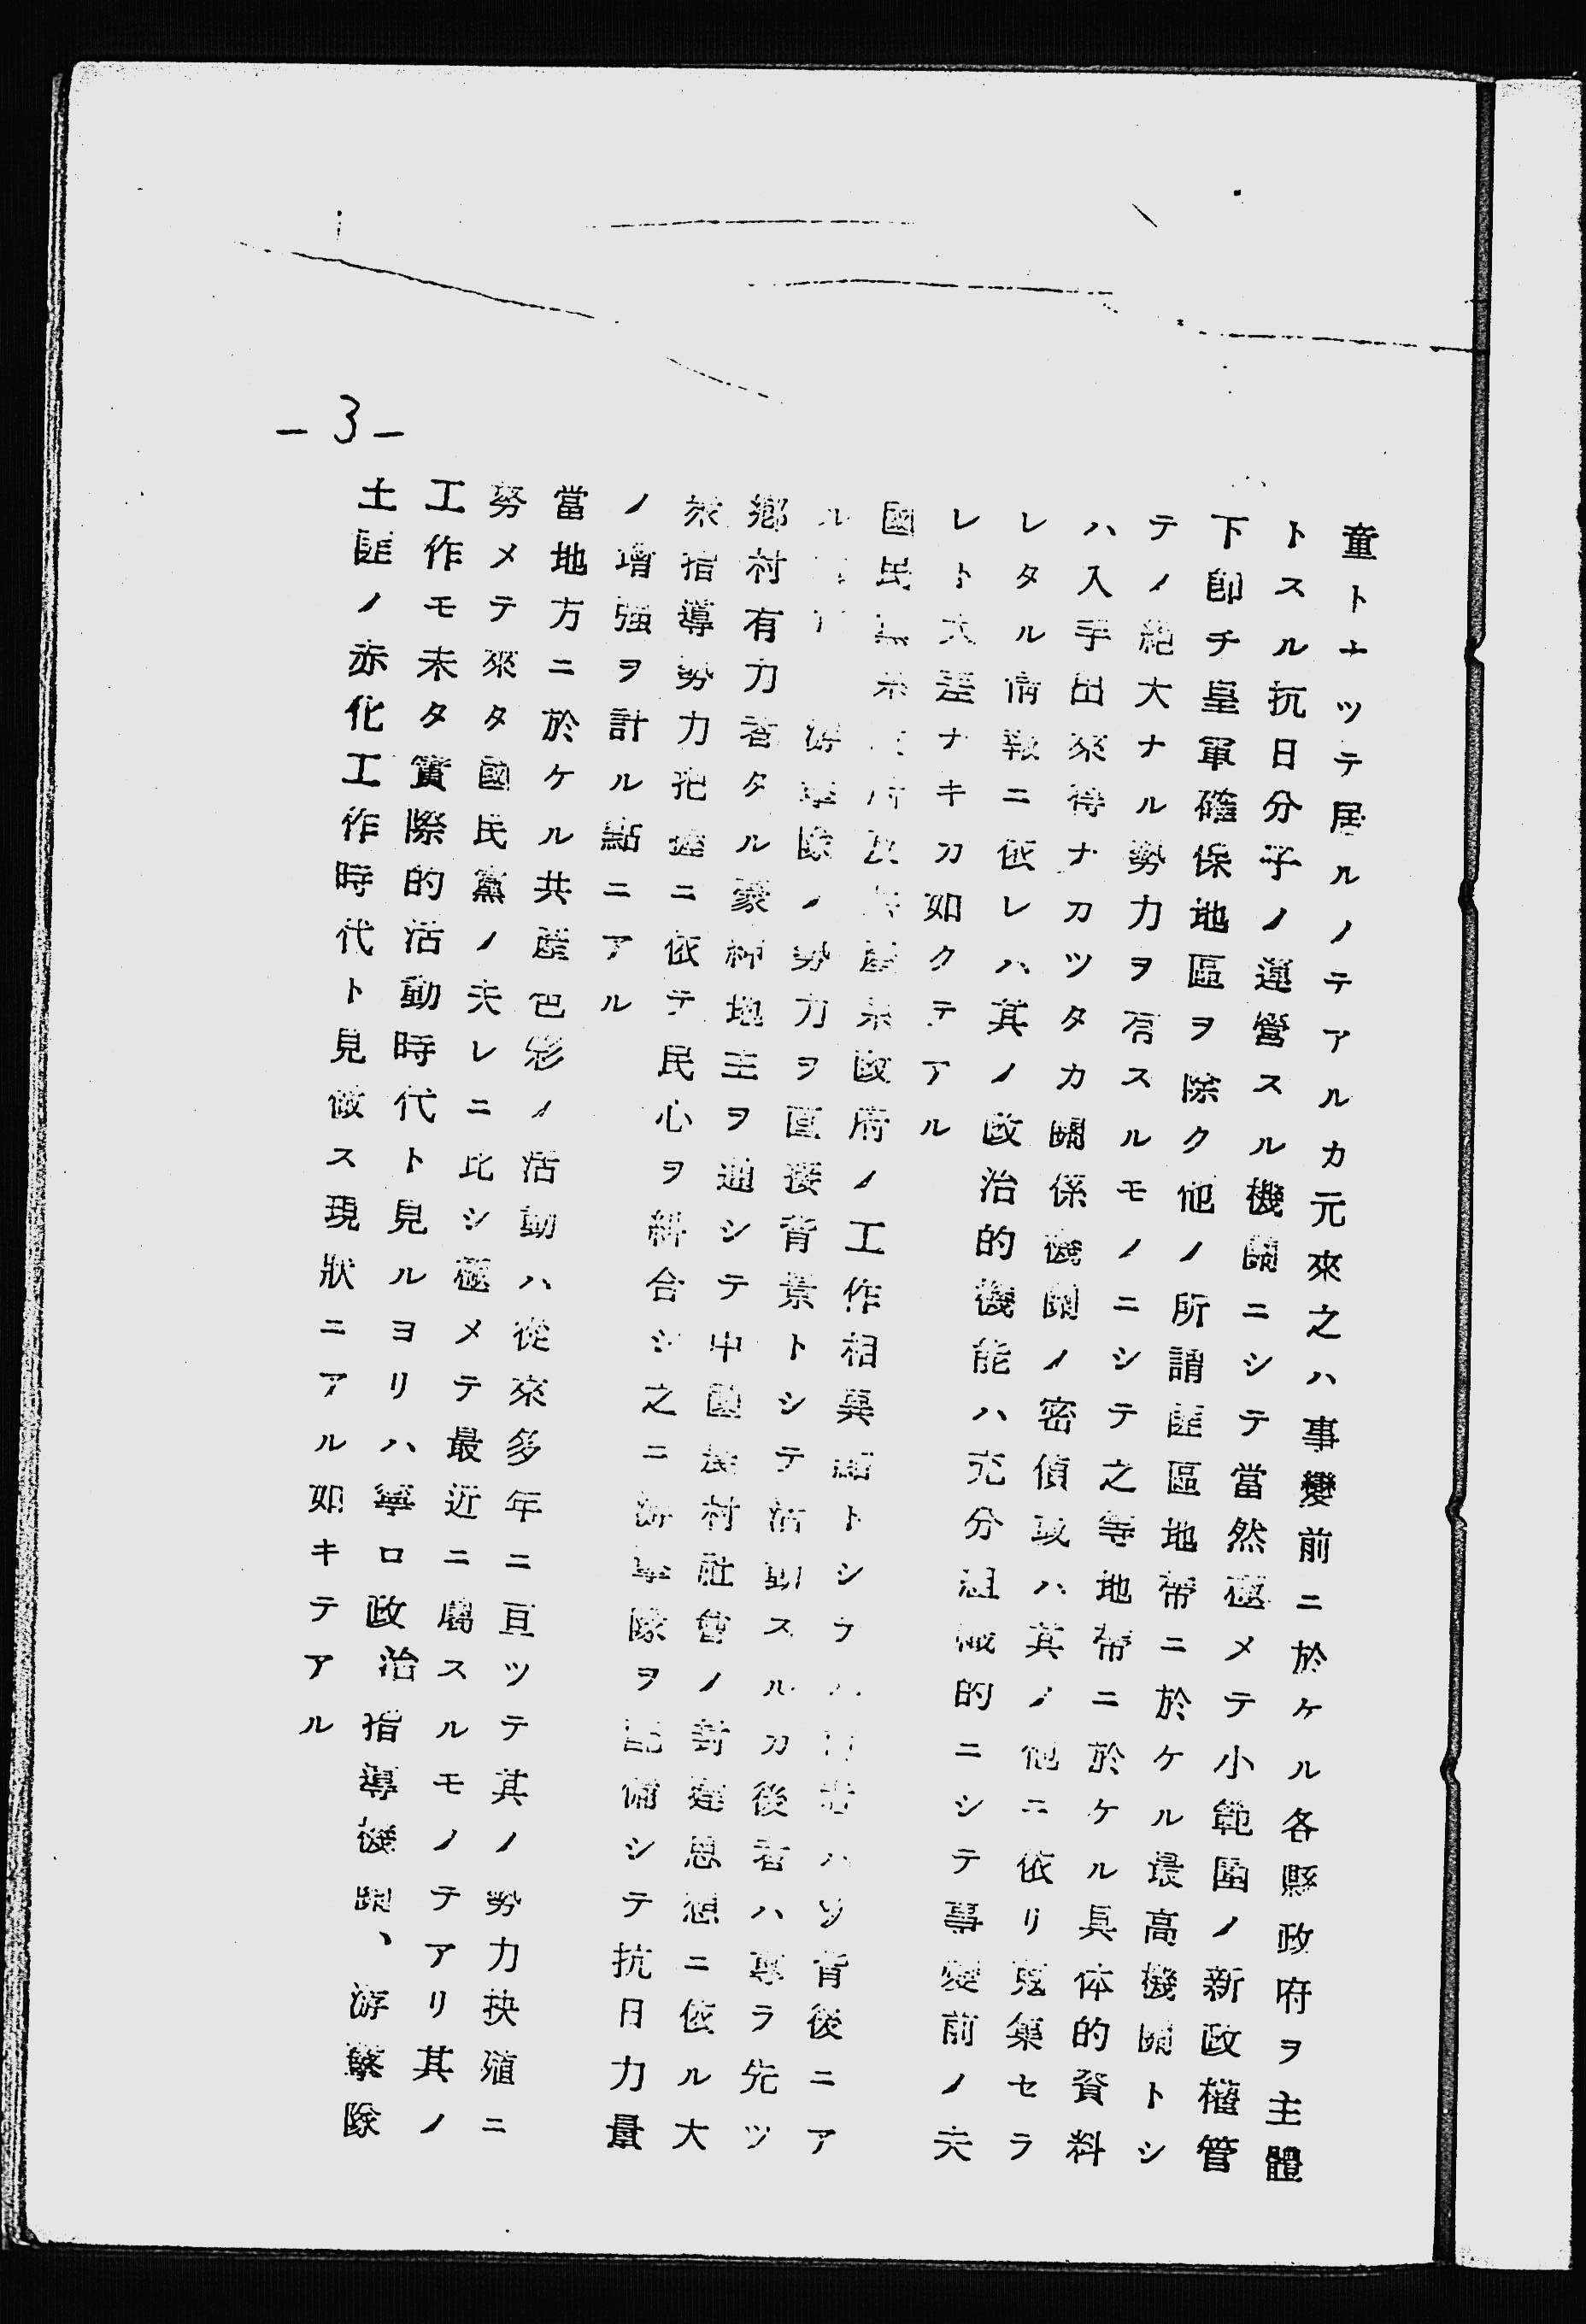 童トナツテ居ルノテアルカ元來之ハ事變前ニ於ケル各縣政府ヲ主體
トスル抗日分子ノ運營スル機關ニシテ當然極メテ小範圍ノ新政權管
下卽チ皇軍確保地區ヲ除ク他ノ所謂匪區地帶ニ於ケル最高機關トシ
テノ絕大ナル勢力ヲ有スルモノニシテ之等地帶ニ於ケル具体的資料
ハ入手出來得ナカツタカ關係機關ノ密偵或ハ其ノ他ニ依リ蒐集セラ
レタル情報ニ依レハ其ノ政治的機能ハ充分組織的ニシテ事變前ノ夫
レト大差ナキカ如クテアル
國民黨系政府及共產系政府ノ工作相異點トシテハ前者ハソノ背後ニア
ル 游擊隊ノ勢力ヲ直接背景トシテ活動スルカ後者ハ專ラ先ツ
鄉村有力者タル豪紳地主ヲ通シテ中國農村社會ノ封建思想ニ依ル大
衆指導勢力把握ニ依テ民心ヲ糾合シ之ニ游擊隊ヲ配備シテ抗日力量
ノ增强ヲ計ル點ニアル
當地方ニ於ケル共產色彩ノ活動ハ從來多年ニ亘ツテ其ノ勢力扶殖ニ
努メテ來タ國民黨ノ夫レニ比シ極メテ最近ニ屬スルモノテアリ其ノ
工作モ未タ實際的活動時代ト見ルヨリハ寧ロ政治指導機關、游擊隊
土匪ノ赤化工作時代ト見做ス現狀ニアル如キテアル
－3－